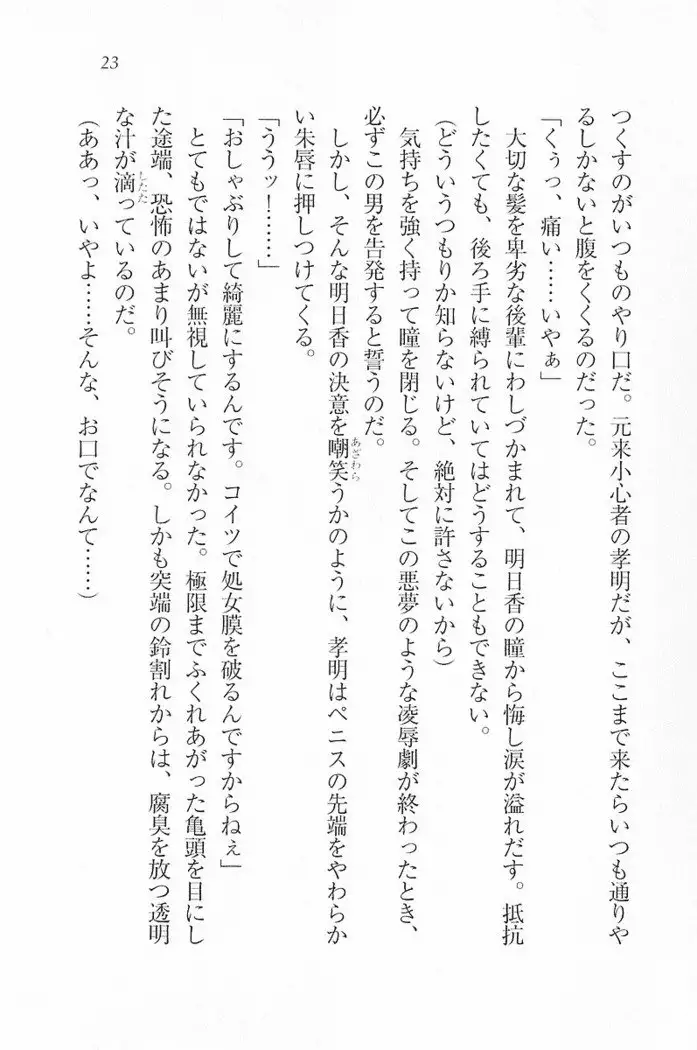 23
つくすのがいつものやり口だ。元来小心者の孝明だが、ここまで来たらいつも通りや
るしかないと腹をくくるのだった。
「くぅっ、痛い……いやぁ」
大切な髪を卑劣な後輩にわしづかまれて、明日香の瞳から悔し涙が溢れだす。抵抗
したくても、後ろ手に縛られていてはどうすることもできない。
(どういうつもりか知らないけど、絶対に許さないから)
気持ちを強く持って瞳を閉じる。そしてこの悪夢のような凌辱劇が終わったとき、
必ずこの男を告発すると誓うのだ。
しかし、そんな明日香の決意を嘲笑うかのように、孝明はペニスの先端をやわらか
い朱唇に押しつけてくる。
「ううッ！……」
「おしゃぶりして綺麗にするんです。コイツで処女膜を破るんですからねぇ」
とてもではないが無視していられなかった。極限までふくれあがった亀頭を目にし
た途端、恐怖のあまり叫びそうになる。しかも突端の鈴割れからは、腐臭を放つ透明
な汁が滴っているのだ。
(ああっ、いやよ……そんな、お口でなんて……)